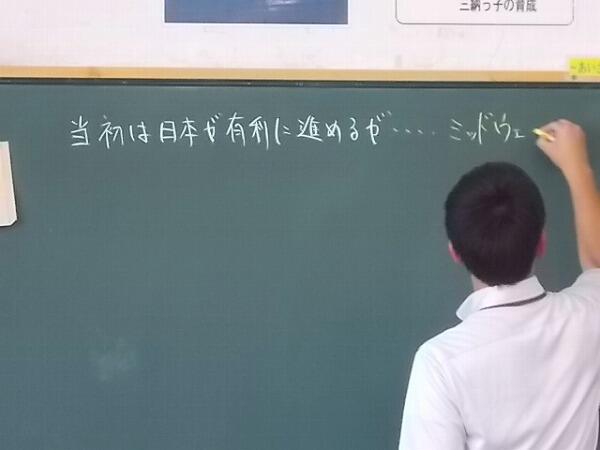 三納っ子の育成
当初は日本が有利に進めるが‥‥ ミッドウェ